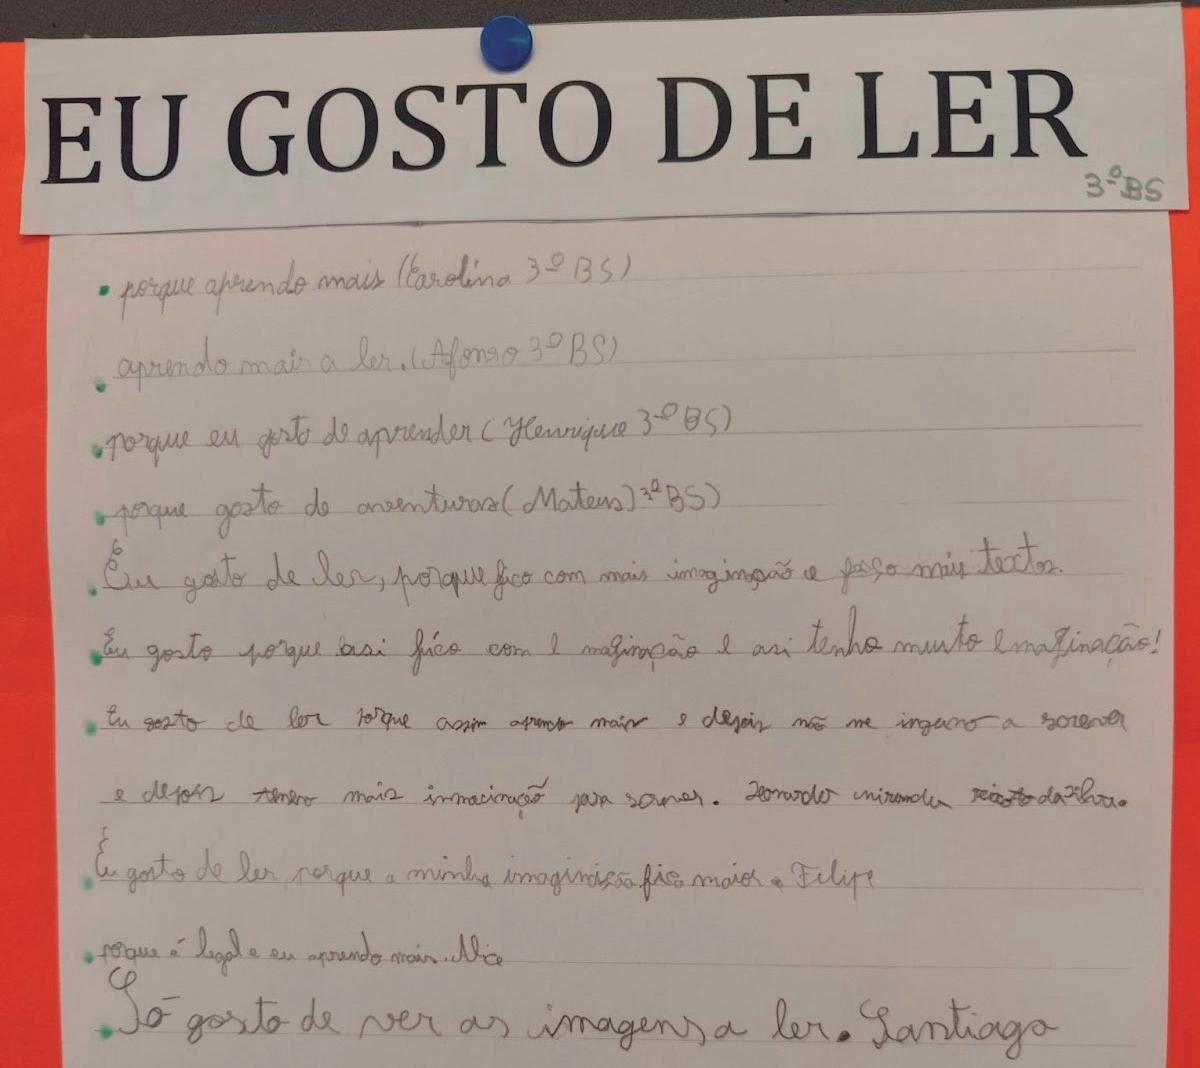 EU GOSTO DE LER
3.º BS
porque aprendo mais (Carolina 3º BS)
aprendo mais a ler. (Afonso 3º BS)
porque eu gosto de aprender (Henrique 3º BS)
porque gosto de aventuras (Mateus) 3º BS)
Eu gosto de ler, porque fico com mais imaginação e faço mais textos.
Eu gosto porque asi fico com e maginação e asi tenho muito emaginação!
Eu gosto de ler porque assim aprendo mais e depois não me ingano a screver
e depois tenho mais inmacinação para screver. Leonardo miranda da silva.
Eu gosto de ler porque a minha fica maior. Filipe
porque é legal e eu aprendo mais. Alice
Só gosto de ver as imagens a ler. Santiago